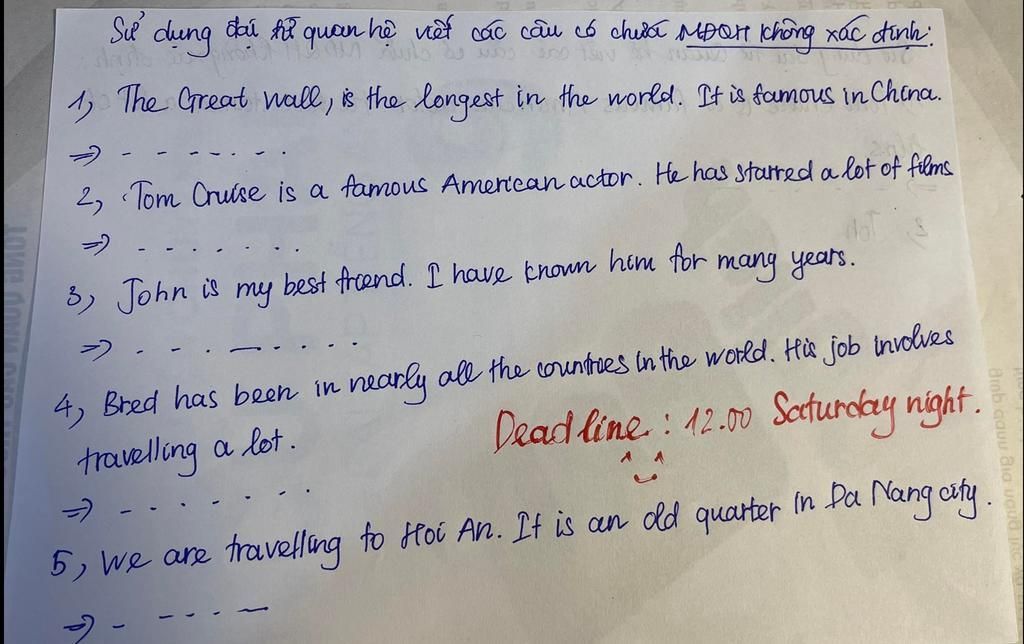 Sử dụng đại từ quan hệ viết các câu có chứa MĐQH không xác định:
1, The Great wall, is the longest in the world. It is famous in China.
=> - - - - - - -
2, Tom Cruise is a famous American actor. He has starred a lot of films
=> - - - - - - -
3, John is my best friend. I have known him for many years.
=> - - - - - - - -
4, Bred has been in nearly all the countries in the world. His job involves
travelling a lot.
Deadline: 12.00 Saturday night.
=> - - - - - - -
5, We are travelling to Hoi An. It is an old quarter in Da Nang city.
=> - - - - - -